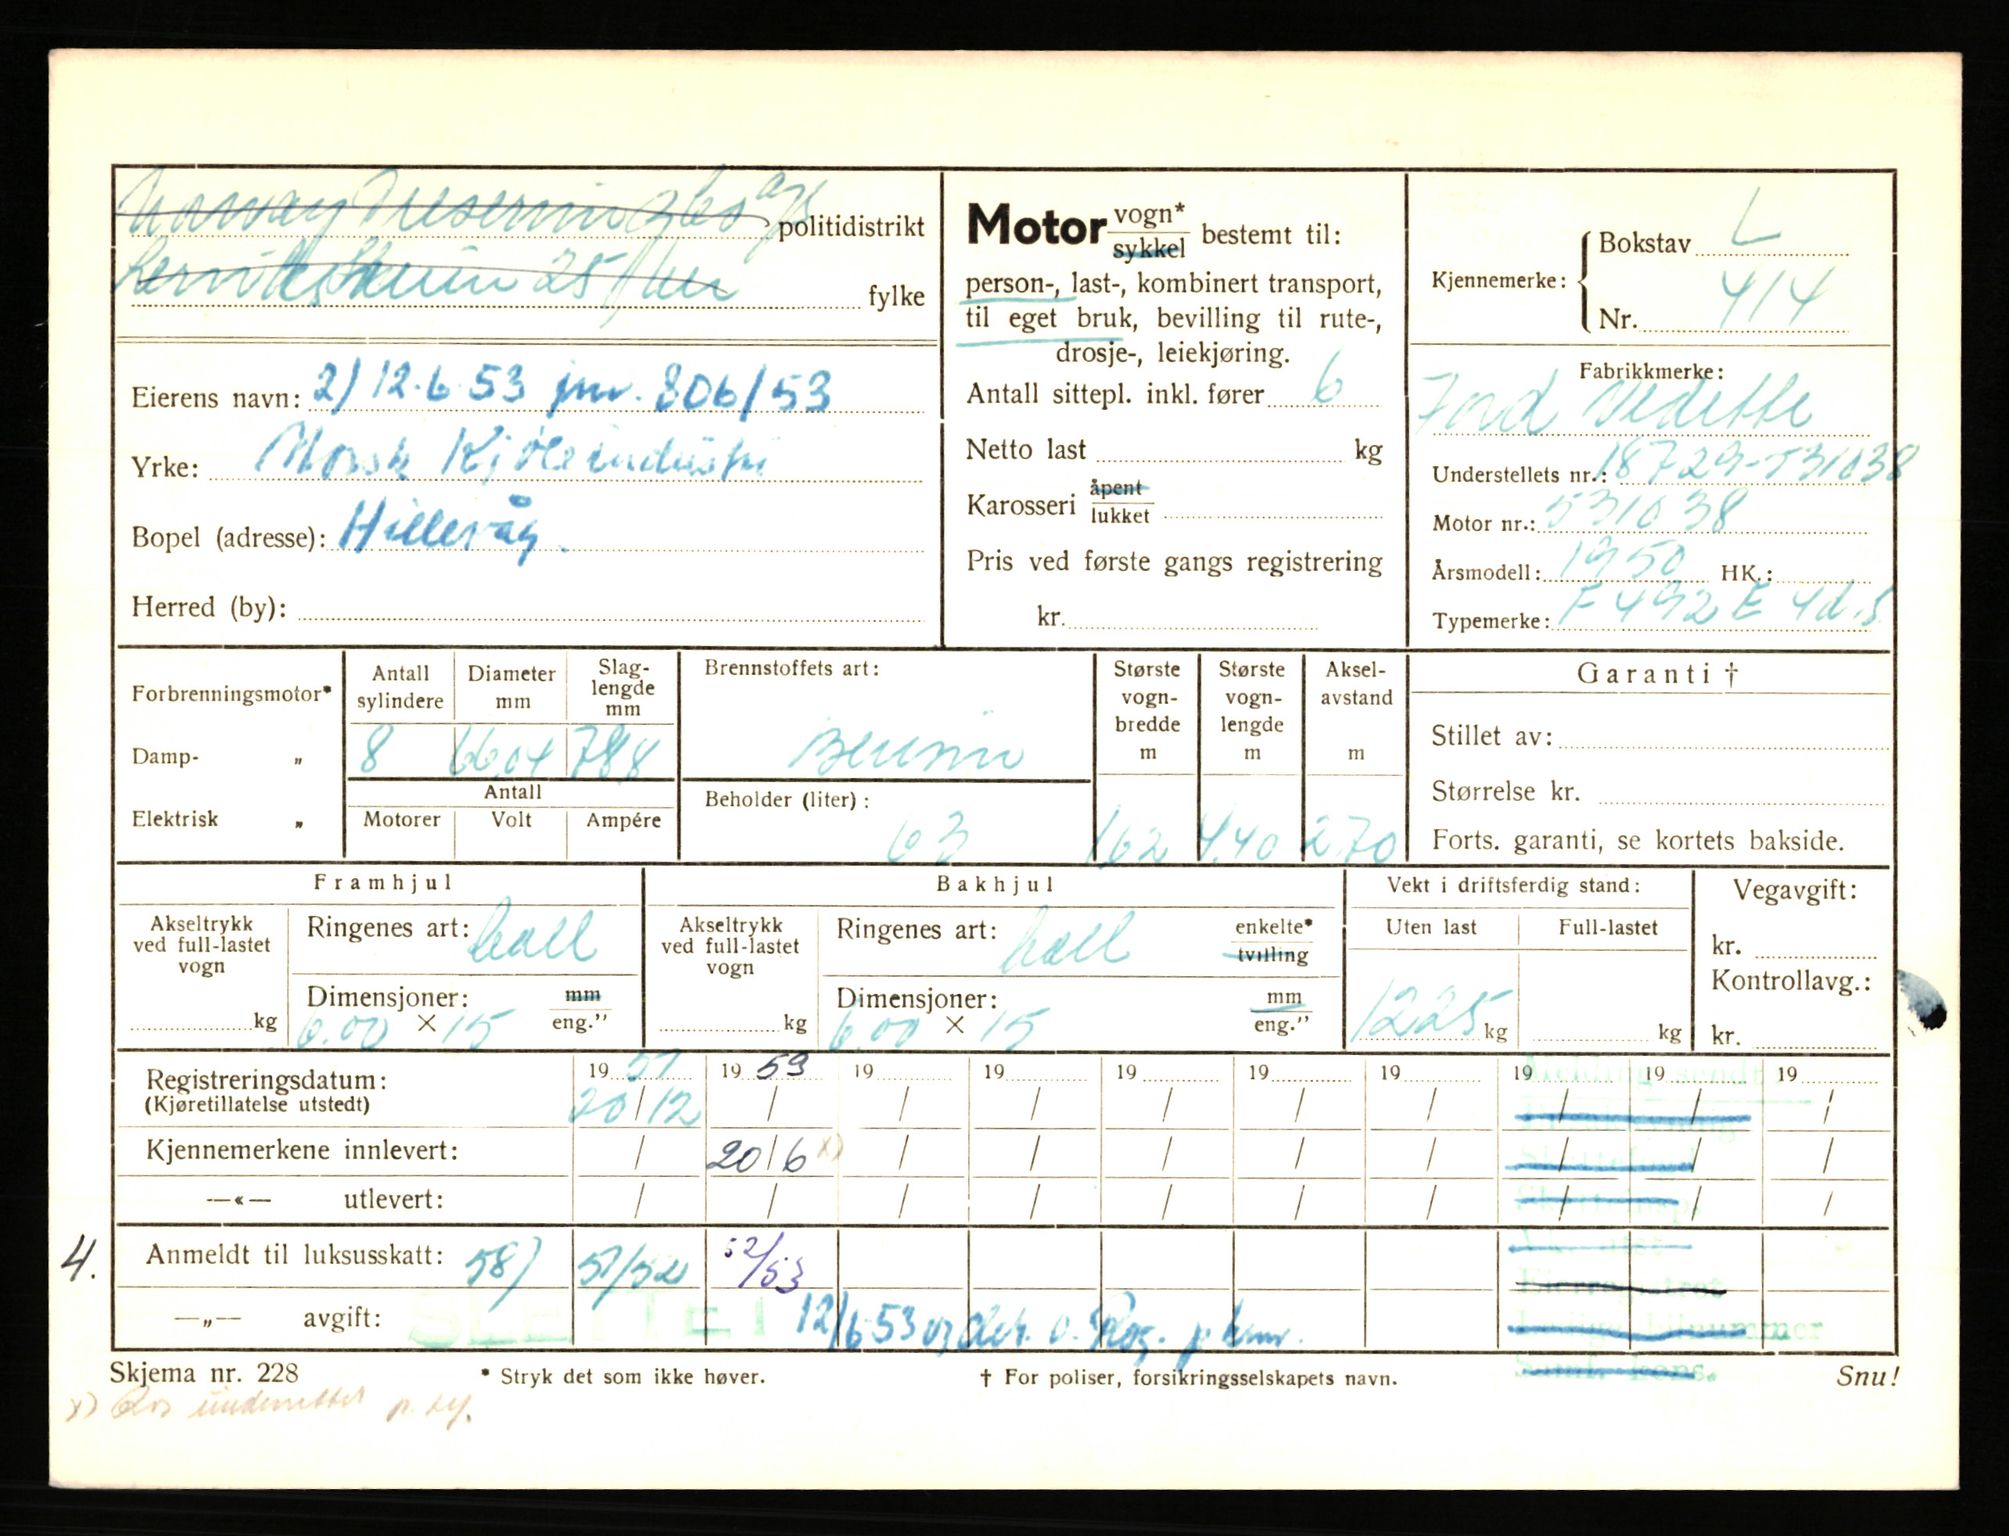 Norway Preserving Co a/s politidistrikt
25 fylke
Eierens navn: 2) 12.6.53 jnr. 806/53
Yrke: Norsk Kjøleindustri
Bopel (adresse): Hillevåg.
Herred (by):
Motor vogn* sykkel bestemt til:
person-, last-, kombinert transport,
til eget bruk, bevilling til rute-,
drosje-, leiekjøring.
Antall sittepl. inkl. fører 6
Netto last kg
Karosseri åpent lukket
Pris ved første gangs registrering
kr.
Kjennemerke: Bokstav L
Nr. 414
Fabrikkmerke:
Ford Vedette
Understellets nr.: 18729-531038
Motor nr.: 531038
Årsmodell: 1950 HK.:
Typemerke: F 492 E 4d.s
Forbrenningsmotor*
Damp- „
Elektrisk „
Antall sylindere Diameter mm Slaglengde mm
8 66.04 78.8
Antall
Motorer Volt Ampére
Brennstoffets art:
Bensin
Beholder (liter):
63
Største vogn-bredde m
1.62
Største vogn-lengde m
4.40
Aksel-avstand m
2.70
Garanti †
Stillet av:
Størrelse kr.
Forts. garanti, se kortets bakside.
Framhjul
Akseltrykk ved full-lastet vogn
kg
Ringenes art: ball
Dimensjoner: mm eng."
6.00 × 15
Bakhjul
Akseltrykk ved full-lastet vogn
kg
Ringenes art: ball enkelte* tvilling
Dimensjoner: mm eng."
6.00 × 15
Vekt i driftsferdig stand:
Uten last Full-lastet
1225 kg kg
Vegavgift:
kr.
Kontrollavg.:
kr.
Registreringsdatum: 19 51 19 53 19 19 19 19 19 19 19 19
(Kjøretillatelse utstedt) 20/12 / / / / / / / / /
Kjennemerkene innlevert: / 20/6 x) / / / / / / / /
—«— utlevert: / / / / / / / / / /
4. Anmeldt til luksusskatt: 58) 51/52 52/53
—„— avgift: SLETTET 12/6 53
Melding sendt:
Skjema nr. 228
* Stryk det som ikke høver.
† For poliser, forsikringsselskapets navn.
Snu!
x) underrettet p. tlf.